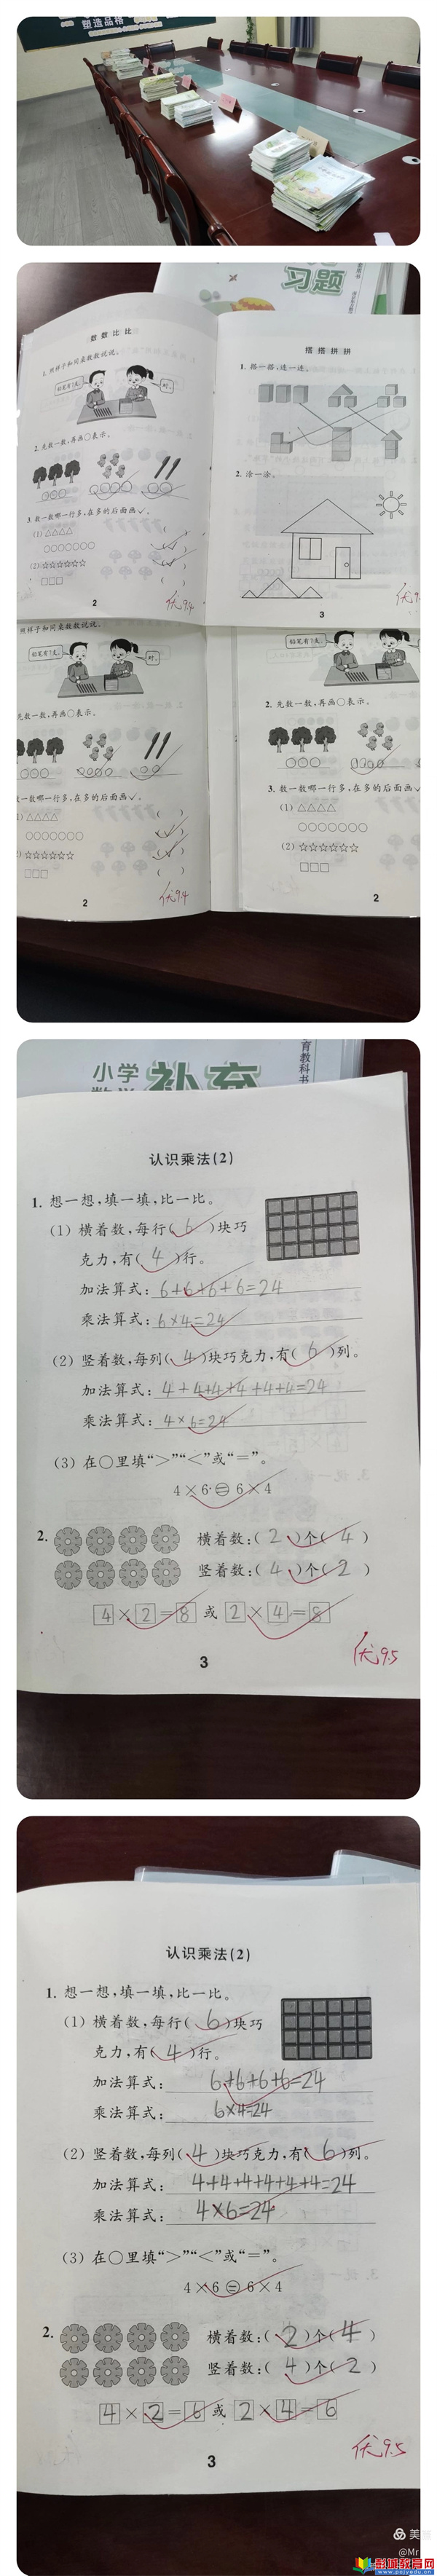 塑造品格
习题
数数比比
1. 照样子和同桌数数说说。
铅笔有7支。
对。
2. 先数一数,再画○表示。
3. 数一数哪一行多,在多的后面画✓。
(1) △△△△ ( )
○○○○○○○ (✓)
(2) ☆☆☆☆☆☆ (✓)
□□□ ( )
2
优9.4
搭搭拼拼
1. 搭一搭,连一连。
2. 涂一涂。
3
优9.
照样子和同桌数数说说。
铅笔有7支。
对。
先数一数,再画○表示。
数一数哪一行多,在多的后面画✓。
1) △△△△ ( )
○○○○○○○ (✓)
2) ☆☆☆☆☆☆ (✓)
□□□ ( )
2
优9.4
铅笔有7支。
2. 先数一数,再画○表示。
3. 数一数哪一行多,在多的后面画✓。
(1) △△△△
○○○○○○○
(2) ☆☆☆☆☆☆
□□□
2
小学
补充
育教科书
认识乘法(2)
1. 想一想,填一填,比一比。
(1) 横着数,每行(6)块巧
克力,有(4)行。
加法算式:6+6+6+6=24
乘法算式:6×4=24
(2) 竖着数,每列(4)块巧克力,有(6)列。
加法算式:4+4+4+4+4+4=24
乘法算式:4×6=24
(3) 在○里填“>”“<”或“=”。
4×6=6×4
2. 横着数:(2)个(4)
竖着数:(4)个(2)
4×2=8或2×4=8
3
优9.5
认识乘法(2)
1. 想一想,填一填,比一比。
(1) 横着数,每行(6)块巧
克力,有(4)行。
加法算式:6+6+6+6=24
乘法算式:6×4=24
(2) 竖着数,每列(4)块巧克力,有(6)列。
加法算式:4+4+4+4+4+4=24
乘法算式:4×6=24
(3) 在○里填“>”“<”或“=”。
4×6=6×4
2. 横着数:(2)个(4)
竖着数:(4)个(2)
4×2=6或2×4=6
3
优9.5
美
@Mr
彭城教育网